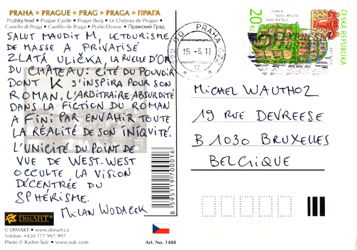 PRAHA • PRAGUE • PRAG • PRAGA • ПРАГА
Pražský hrad • Prague Castle • Prager Burg • Le Château de Prague •
Castillo de Praga • Castello di Praga •
SALUT MAUDIT M, LE TOURISME
DE MASSE A PRIVATISÉ
ZLATÁ ULIČKA, LA RUELLE D'OR
DU CHÂTEAU: CITÉ DU POUVOIR
DONT K S'INSPIRA POUR SON
ROMAN. L'ARBITRAIRE ABSURDITÉ
DANS LA FICTION DU ROMAN
A FINI PAR ENVAHIR TOUTE
LA RÉALITÉ DE SON INIQUITÉ.
L'UNICITÉ DU POINT DE
VUE DE WEST-WEST
OCCULTE LA VISION
DÉCENTRÉE DU
SPHÉRISME.
MILAN WODACEK
15.-5.11
20
ČESKÁ REPUBLIKA
MICHEL WAUTHOZ
19 RUE DEVREESE
B 1030 BRUXELLES
BELGIQUE
DIMART
© DIMART • www.dimart.cz
Telefon: +420 777 997 997
Photo © Radim Suk • www.suk.com
Art. No. 1488